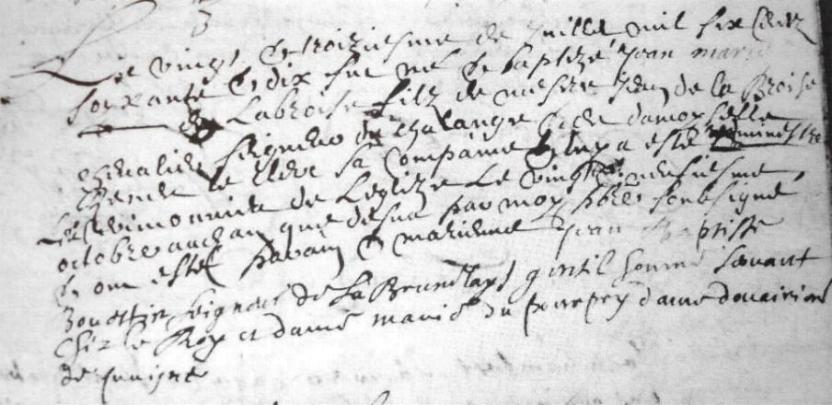 Le vingt & troiziesme de juillet mil six centz
soixante & dix fut né & baptizé Jean marie
de Labroise filz de messire Jean de la Broise
chevalier seigneur du chalange & de damoyselle
le clerc sa compaigne & luy a esté administré
Les cerimonies de Leglize Le vingt neufiesme
octobre audit an que desus par moy pbre soubsigné
& ont esté parain & maraine Jean Baptiste
seigneur de La gentil homme servant
chez le Roy et dame marie du pourpry dame douairiere
de